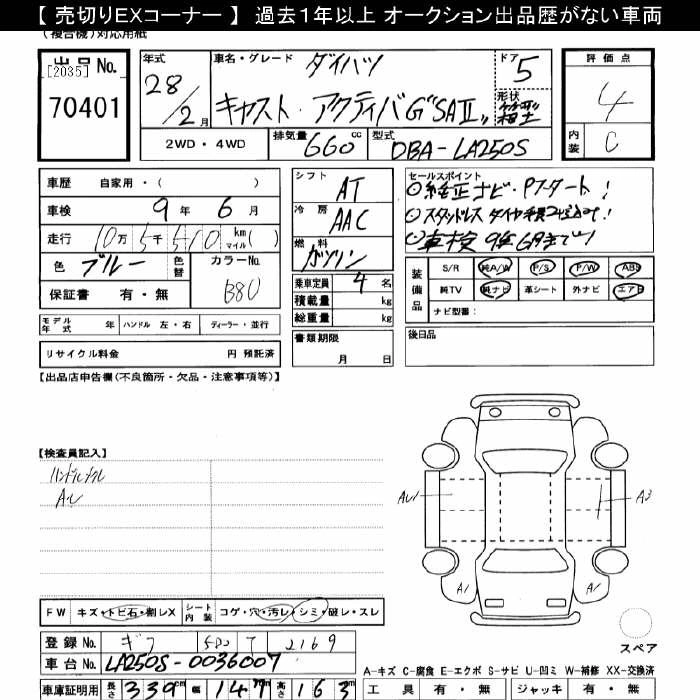 【 売切りEXコーナー 】 過去1年以上 オークション出品歴がない車両
(複合機)対応用紙
出品No.
[2035]
70401
年式
28/2月
車名・グレード
ダイハツ
キャスト・アクティバG"SAⅡ"
ドア
5
形状
評価点
4
内装
C
2WD・4WD
排気量
660cc
型式
DBA-LA250S
車歴 自家用・( )
車検 9年 6月
走行 10万5千510 km マイル( )
色 ブルー 色替
カラーNo.
B80
保証書 有・無
シフト
AT
冷房
AAC
燃料
ガソリン
乗車定員 4名
積載量 kg
総重量 kg
書類期限
月 日
セールスポイント
純正ナビ・Pスタート!
スタッドレスタイヤ
車検9年6月まで!
装備品
S/R 純A/W P/S P/W ABS
純TV 純ナビ 革シート 外ナビ エアB
ナビ型番:
後日品
モデル年式 年 ハンドル 左・右 ディーラー・並行
リサイクル料金 円 預託済
【出品店申告欄(不良箇所・欠品・注意事項等)】
【検査員記入】
Aル
AU1
A3
A1
A1
スペア
FW キズ・トビ石・割レX シート内装 コゲ・穴・汚レ・シミ・破レ・スレ
登録No. ギフ 580 T 2169
車台No. LA250S-0036007
車庫証明用 長さ 339cm 幅 147cm 高さ 163cm
A-キズ C-腐食 E-エクボ S-サビ U-凹ミ W-補修 XX-交換済
工具 有・無 ジャッキ 有・無